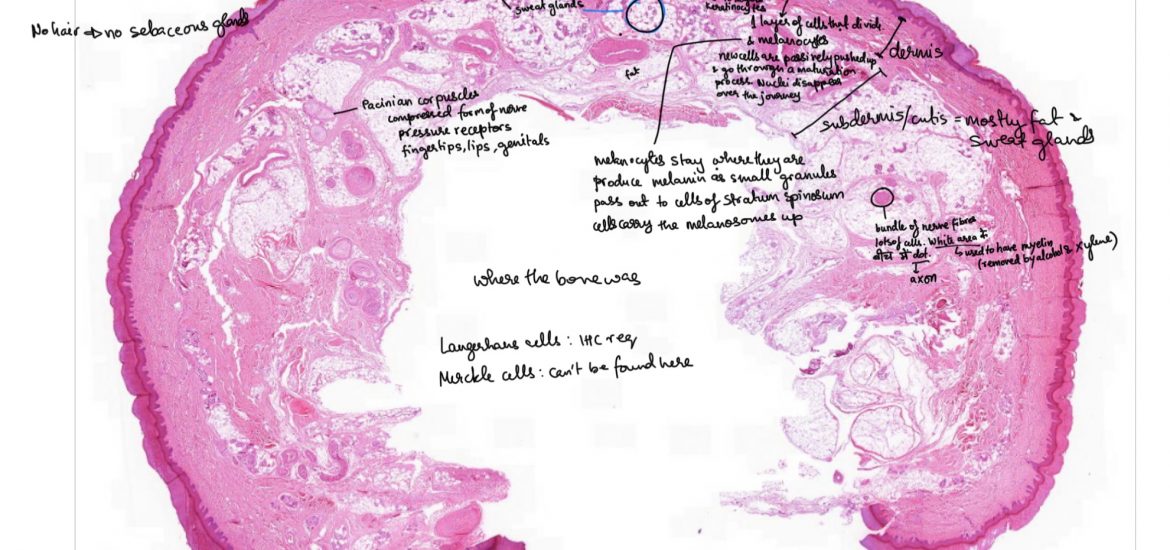 No hair → no sebaceous glands
sweat glands
keratinocytes
1 layer of cells that divide
& melanocytes
new cells are passively pushed up
& go through a maturation
process. Nuclei disappear
over the journey
dermis
fat
Pacinian corpuscles
compressed form of nerve
pressure receptors
fingertips, lips, genitals
subdermis/cutis = mostly fat &
sweat glands
melanocytes stay where they are
produce melanin as small granules
pass out to cells of Stratum spinosum
cells carry the melanosomes up
bundle of nerve fibres
lots of cells. White area &
dot.
↳ used to have myelin
(removed by alcohol & xylene)
axon
where the bone was
Langerhans cells : IHC req
Merckle cells : can't be found here